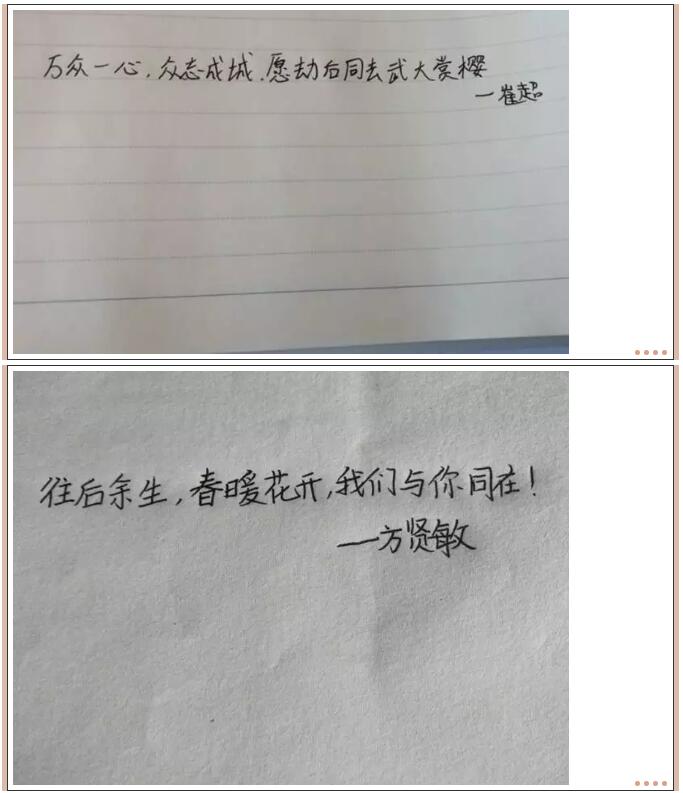 万众一心，众志成城，愿劫后同去武大赏樱
—崔超
往后余生，春暖花开，我们与你同在！
—方贤敏